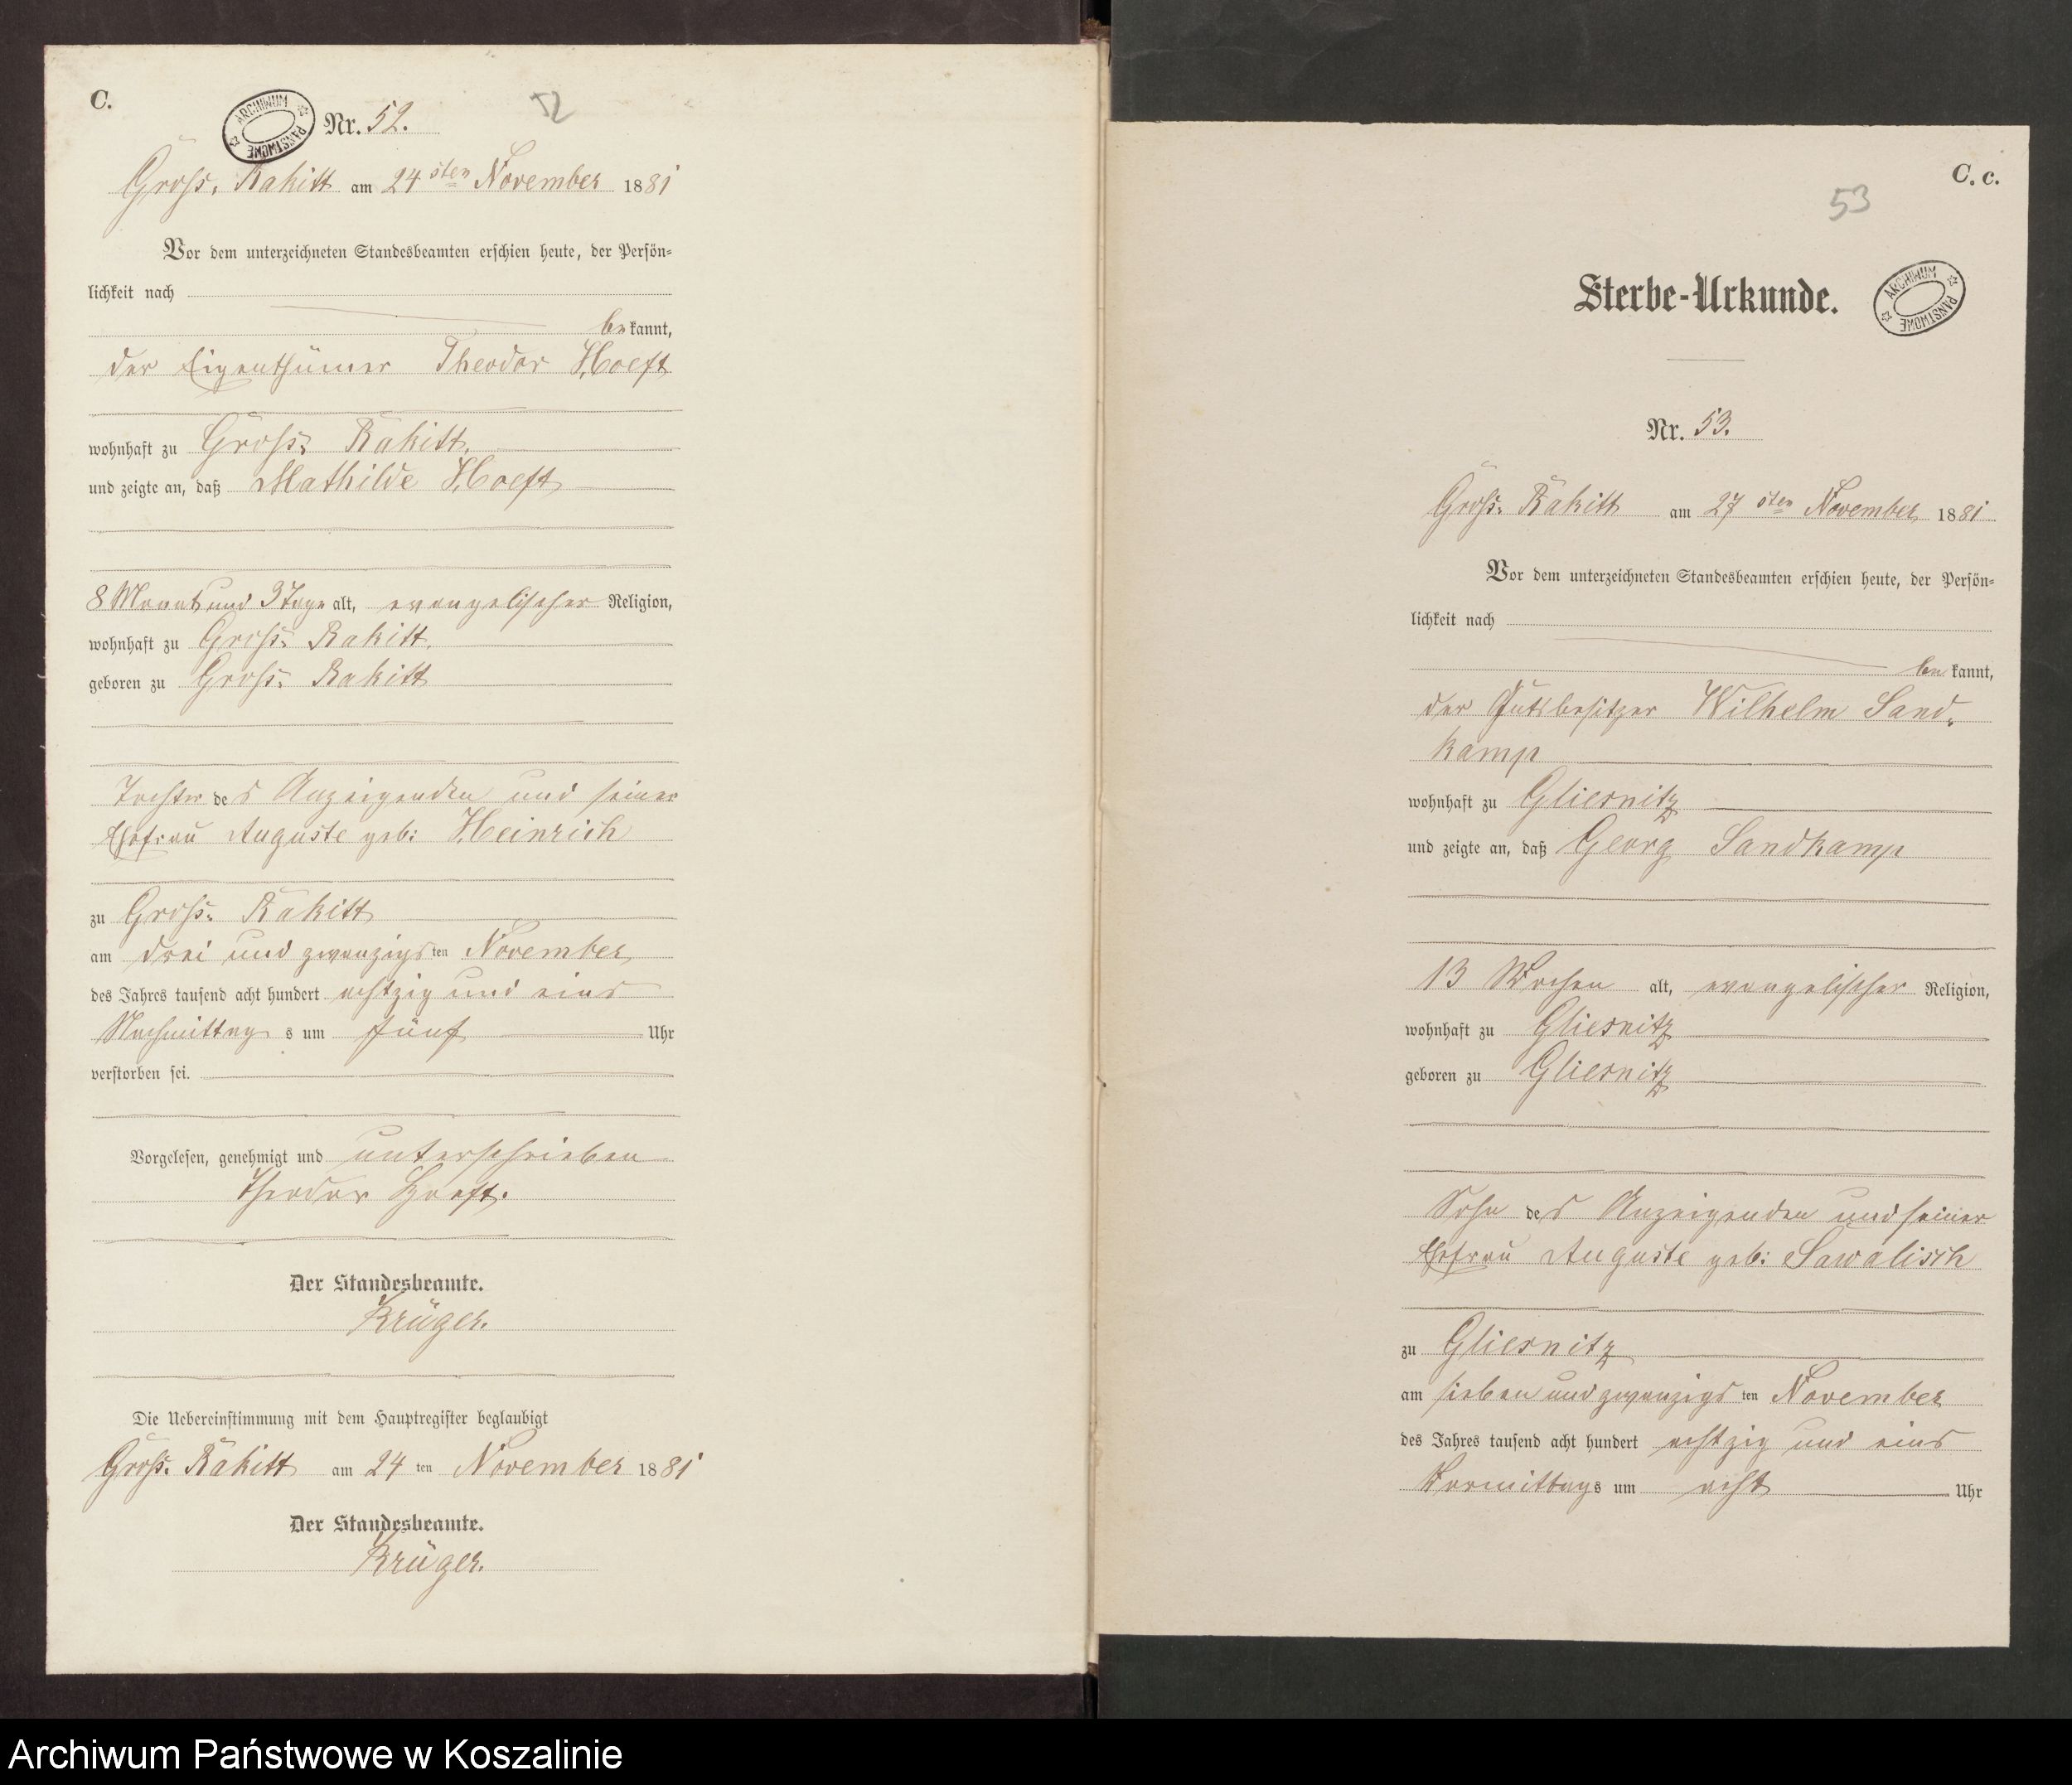 C.
ARCHIWUM PAŃSTWOWE
Nr. 52.
52
Groß. Rakitt am 24sten November 1881
Vor dem unterzeichneten Standesbeamten erschien heute, der Persön-
lichkeit nach
bekannt,
der Eigenthümer Theodor Hoeft
wohnhaft zu Groß. Rakitt.
und zeigte an, daß Mathilde Hoeft
8 Monat und 3 Tage alt, evangelischer Religion,
wohnhaft zu Groß. Rakitt.
geboren zu Groß. Rakitt
Tochter des Anzeigenden und seiner
Ehefrau Auguste geb: Heinrich
zu Groß. Rakitt
am drei und zwanzigsten November
des Jahres tausend acht hundert achtzig und eins
Nachmittags um fünf Uhr
verstorben sei.
Vorgelesen, genehmigt und unterschrieben
Theodor Hoeft.
Der Standesbeamte.
Krüger.
Die Uebereinstimmung mit dem Hauptregister beglaubigt
Groß. Rakitt am 24ten November 1881
Der Standesbeamte.
Krüger.
C. c.
53
Sterbe-Urkunde.
ARCHIWUM PAŃSTWOWE
Nr. 53.
Groß. Rakitt am 27sten November 1881
Vor dem unterzeichneten Standesbeamten erschien heute, der Persön-
lichkeit nach
bekannt,
der Gutsbesitzer Wilhelm Sand-
kamp
wohnhaft zu Gliesnitz
und zeigte an, daß Georg Sandkamp
13 Wochen alt, evangelischer Religion,
wohnhaft zu Gliesnitz
geboren zu Gliesnitz
Sohn des Anzeigenden und seiner
Ehefrau Auguste geb: Sawalisch
zu Gliesnitz
am sieben und zwanzigsten November
des Jahres tausend acht hundert achtzig und eins
Vormittags um acht Uhr
Archiwum Państwowe w Koszalinie